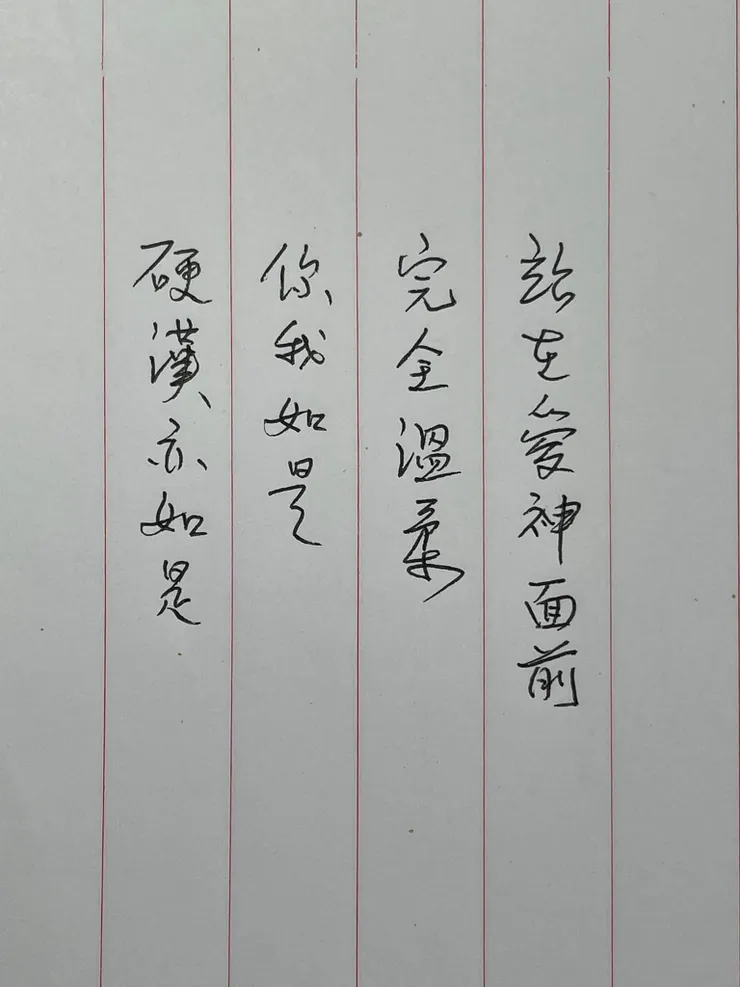 站在愛神面前
完全溫柔
你我如是
硬漢亦如是